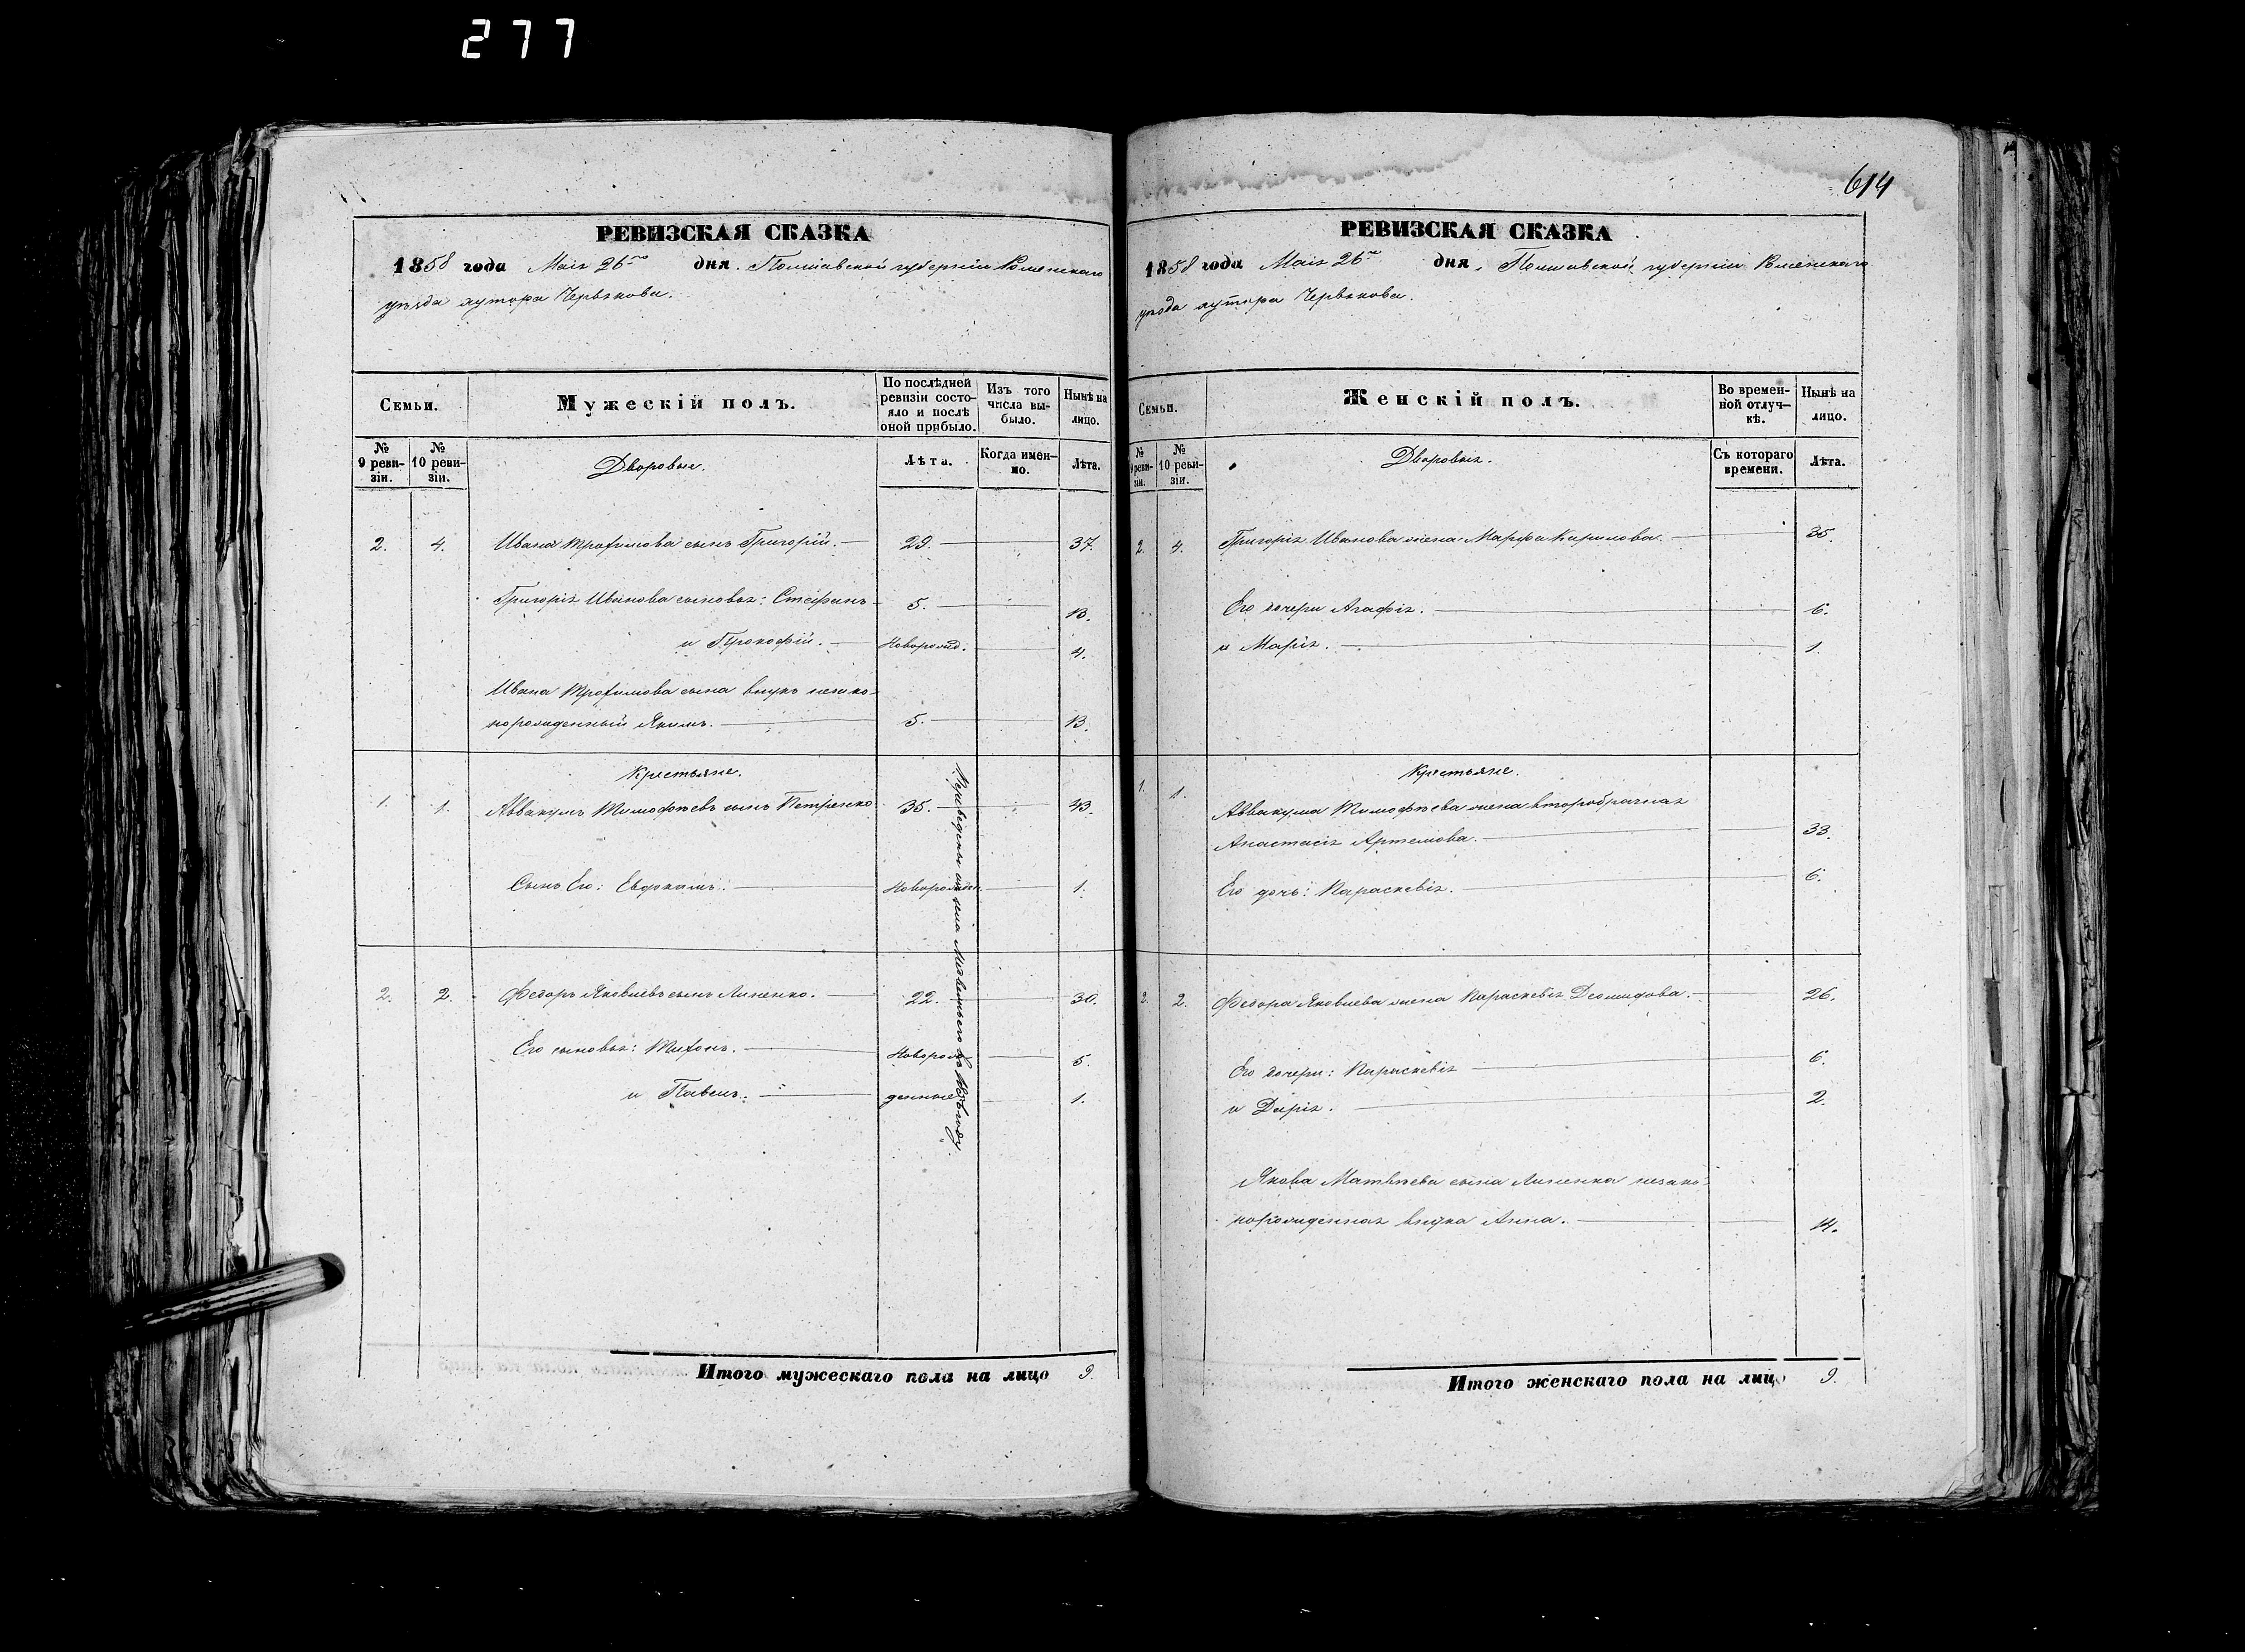 277
РЕВИЗСКАЯ СКАЗКА
1858 года Маія 26го дня. Полтавской губерніи Роменскаго
уѣзда хутора Червякова.
Семьи.
Мужескій полъ.
По послѣдней ревизіи состояло и послѣ оной прибыло.
Изъ того числа выбыло.
Нынѣ на лицо.
№ 9 ревизіи.
№ 10 ревизіи.
Дворовые.
Лѣта.
Когда именно.
Лѣта.
2. 4. Ивана Трофимова сынъ Григорій. 29. 37.
Григорія Иванова сыновья: Стефанъ 5. 13.
и Прокофій. Новорожд. 4.
Ивана Трофимова сына внукъ незако-
норожденный Якимъ. 5. 13.
Крестьяне.
1. 1. Аввакумъ Тимофѣевъ сынъ Петренко 35. 43.
Сынъ Его: Евфимъ. Новорожден. 1.
2. 2. Федоръ Яковлевъ сынъ Линенко. 22. 30.
Его сыновья: Тихонъ. Новорож- 5.
и Павелъ. денные 1.
Переведены изъ села въ году.
Итого мужескаго пола на лицо 9.
614
РЕВИЗСКАЯ СКАЗКА
1858 года Маія 26го дня. Полтавской губерніи Роменскаго
уѣзда хутора Червякова.
Семьи.
Женскій полъ.
Во временной отлучкѣ.
Нынѣ на лицо.
№ 9 ревизіи.
№ 10 ревизіи.
Дворовыя.
Съ котораго времени.
Лѣта.
2. 4. Григорія Иванова жена Марфа Кирилова. 35.
Его дочери Агафія. 6.
и Марія. 1.
Крестьяне.
1. 1. Аввакума Тимофѣева жена второбрачная
Анастасія Артемова. 33.
Его дочь: Параскевія. 6.
2. 2. Федора Яковлева жена Параскевія Деомидова. 26.
Его дочери: Параскевія 6.
и Дарія. 2.
Якова Матвѣева сына Линенка незако-
норожденная внука Анна. 14.
Итого женскаго пола на лицо 9.